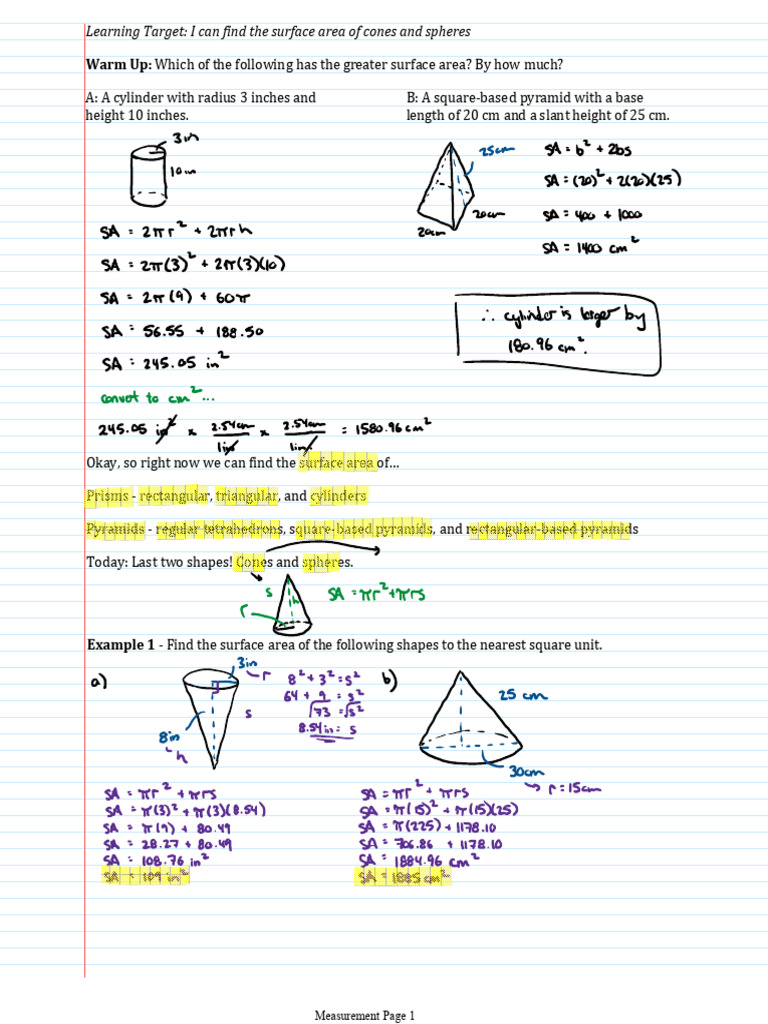 Learning Target: I can find the surface area of cones and spheres
Warm Up: Which of the following has the greater surface area? By how much?
A: A cylinder with radius 3 inches and
height 10 inches.
B: A square-based pyramid with a base
length of 20 cm and a slant height of 25 cm.
3in
10in
SA = 2πr² + 2πrh
SA = 2π(3)² + 2π(3)(10)
SA = 2π(9) + 60π
SA = 56.55 + 188.50
SA = 245.05 in²
convert to cm²...
245.05 in² x 2.54cm/1in x 2.54cm/1in = 1580.96 cm²
25cm
20cm
20cm
SA = b² + 2bs
SA = (20)² + 2(20)(25)
SA = 400 + 1000
SA = 1400 cm²
∴ cylinder is larger by
180.96 cm².
Okay, so right now we can find the surface area of...
Prisms - rectangular, triangular, and cylinders
Pyramids - regular tetrahedrons, square-based pyramids, and rectangular-based pyramids
Today: Last two shapes! Cones and spheres.
s
h
r
SA = πr² + πrs
Example 1 - Find the surface area of the following shapes to the nearest square unit.
a)
3in
r
8in
h
s
8² + 3² = s²
64 + 9 = s²
√73 = √s²
8.54in = s
SA = πr² + πrs
SA = π(3)² + π(3)(8.54)
SA = π(9) + 80.49
SA = 28.27 + 80.49
SA = 108.76 in²
SA = 109 in²
b)
25 cm
30cm
r = 15cm
SA = πr² + πrs
SA = π(15)² + π(15)(25)
SA = π(225) + 1178.10
SA = 706.86 + 1178.10
SA = 1884.96 cm²
SA = 1885 cm²
Measurement Page 1